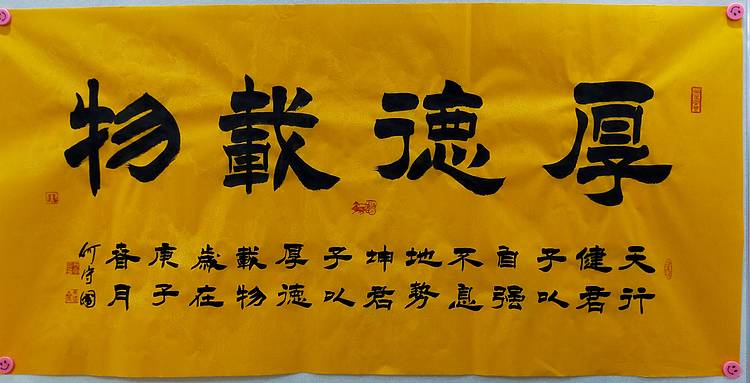 厚德載物
天行
健君
子以
自强
不息
地勢
坤君
子以
厚德
載物
歲在
庚子
春月
何守國